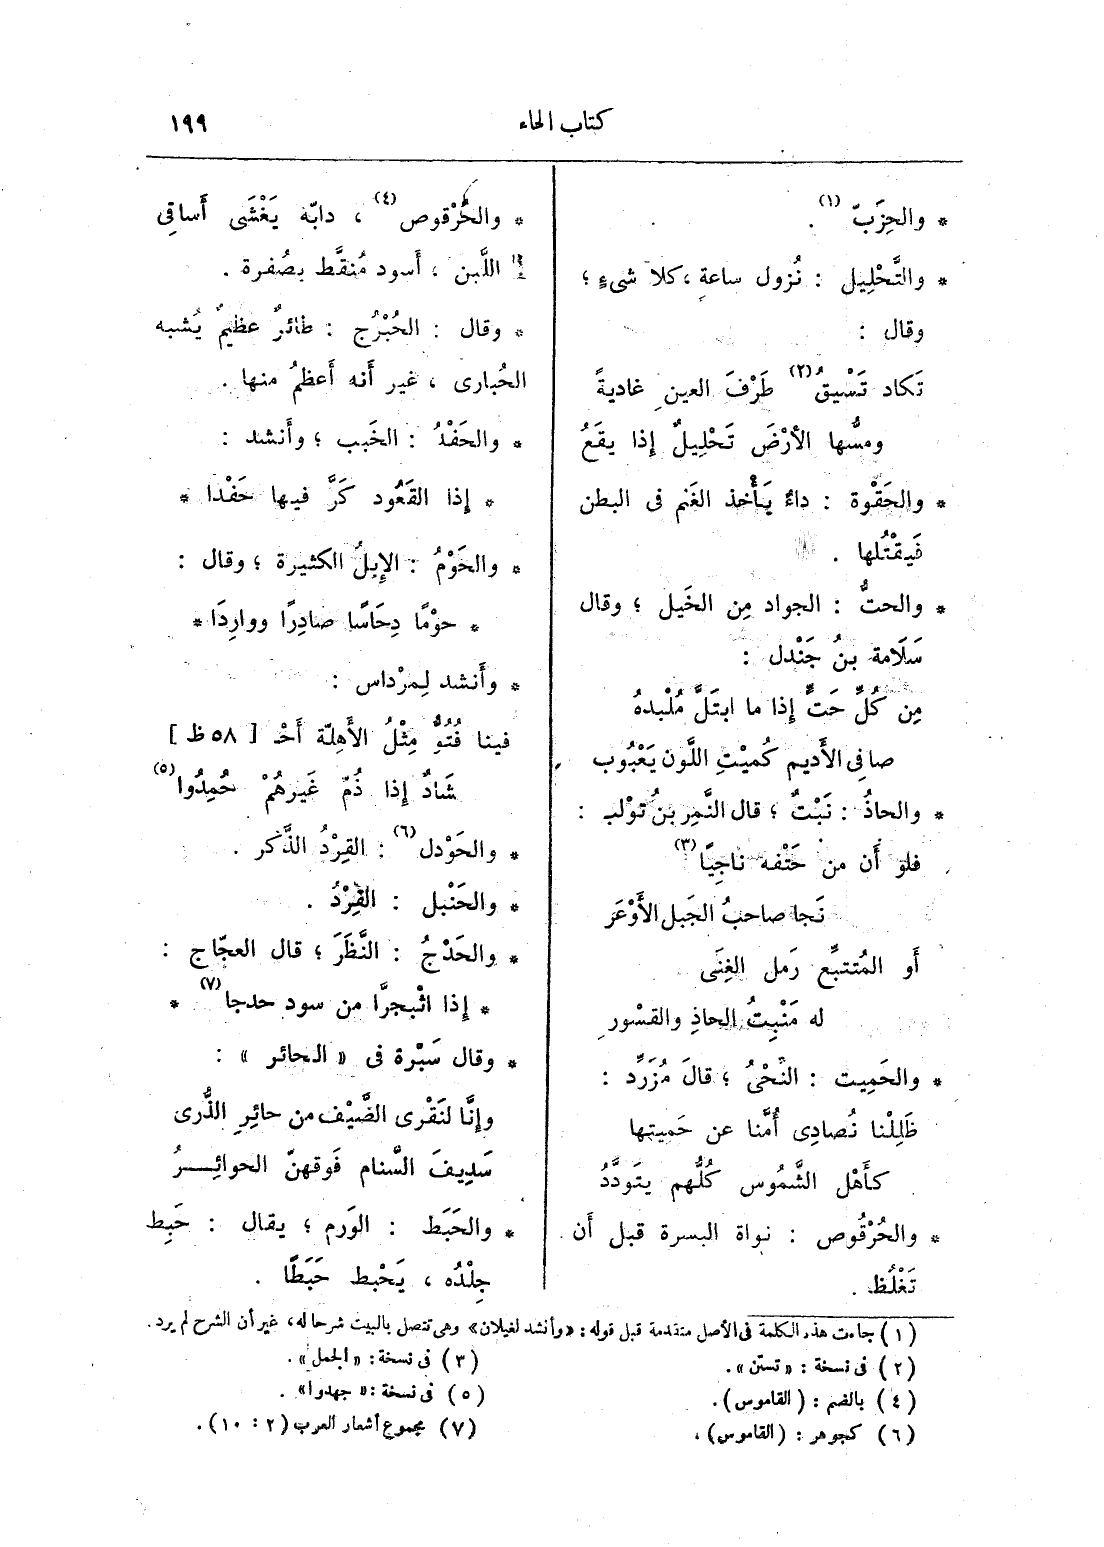 كتاب الحاء
١٩٩
* والحِزَبّ (١) .
* والتَّحْلِيل : نُزول ساعةِ ، كلا شىءٍ ؛
وقال :
تَكاد تَسْبِقُ (٢) طَرْفَ العين غاديةً
ومسُّها الأرْضَ تَحْلِيلٌ إذا يقَعُ
* والحَقْوة : داءٌ يَأْخذ الغَنم فى البطن
فَيقْتُلها .
* والحتُّ : الجواد مِن الخَيل ؛ وقال
سَلَامة بنُ جَنْدل :
مِن كُلِّ حَتٍّ إذا ما ابتَلَّ مُلْبدهُ
صافِى الأَديم كُميْتِ اللَّون يَعْبُوب
* والحاذُ : نَبْتٌ ؛ قال النَّمِر بنُ تَوْلب :
فلو أَن من حَتْفه ناجِيًا (٣)
نَجا صاحبُ الجَبل الأَوْعَر
أَو المُتتبِّع رَمل الغِنَى
له مَنْبِتُ الحاذِ والقسْورِ
* والحَمِيت : النَّحْىُ ؛ قالَ مُزَرِّد :
ظَلِلْنا نُصادِى أُمَّنا عن حَميتِها
كأَهْل الشَّمُوس كُلُّهم يتَودَّدُ
* والحُرْقُوص : نواة البسرة قبل أَن
تَغْلُظ .
* والحُرْقوص (٤) ، دابّه يَغْشَى أَساقِى
اللَّبن ، أَسود مُنقَّط بصُفرة .
* وقال : الحُبْرُج : طائرٌ عظيمٌ يُشبه
الحُبارى ، غير أَنه أَعظمُ منها .
* والحَفْدُ : الخَبب ؛ وأَنشد :
* إذا القَعُود كَرَّ فيها حَفْدا *
* والحَوْمُ : الإبِلُ الكثيرة ؛ وقال :
* حوْمًا دِحَاسًا صادِرًا وواردَا *
* وأَنشد لِمرْداس :
فينا فُتُوٌّ مِثْلُ الأَهِلّة أَحْـ [ ٥٨ ظ ]
شَادٌ إذا ذُمّ غَيرهُمْ حُمِدُوا (٥)
* والحَوْدل (٦) : القِرْدُ الذَّكر .
* والحَنْبل : القِرْدُ .
* والحَدْجُ : النَّظَرَ ؛ قال العجّاج :
* إذا اثْبجرَّا من سود حدجا (٧) *
* وقال سَبْرة فى « الحائر » :
وإنَّا لنَقْرى الضَّيْف من حائِرِ الذُّرى
سَدِيفَ السَّنام فَوقهنّ الحوائِـرُ
* والحَبَط : الوَرم ؛ يقال : حَبِط
جِلْدُه ، يَحْبط حَبَطًا .
(١) جاءت هذه الكلمة فى الأصل متقدمة قبل قوله : «وأنشد لغيلان» وهى تتصل بالبيت شرحا له، غير أن الشرح لم يرد .
(٢) فى نسخة : « تستن » .
(٣) فى نسخة : « الجمل » .
(٤) بالضم : (القاموس) .
(٥) فى نسخة : « جهدوا » .
(٦) كجوهر : (القاموس) ،
(٧) مجموع أشعار العرب (٢ : ١٠) .